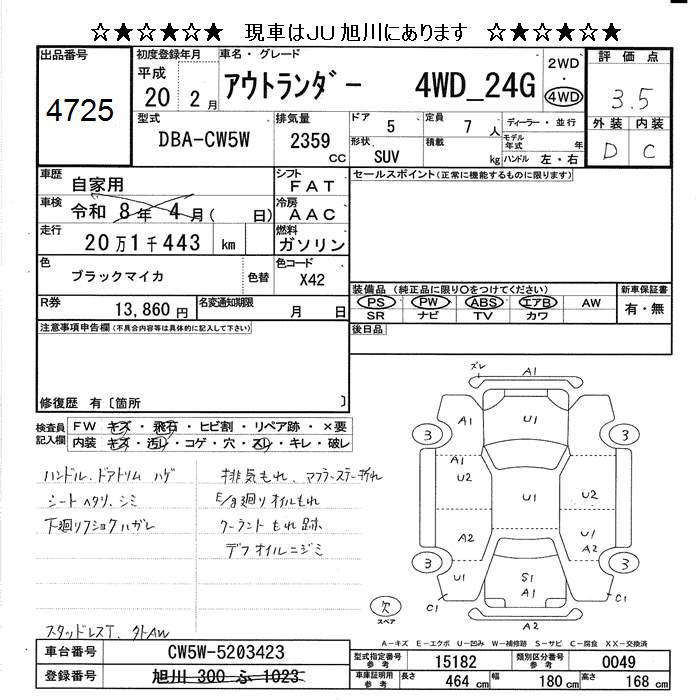 ☆★☆★☆★ 現車はJU旭川にあります ☆★☆★☆★
出品番号
4725
初度登録年月
平成
20 2月
車名・グレード
アウトランダー 4WD_24G
2WD
・
4WD
評価点
3.5
型式
DBA-CW5W
排気量
2359
cc
ドア 5
定員 7 人
ディーラー・並行
外装 内装
D C
形状 SUV
積載 kg
モデル年式 年
ハンドル 左・右
車歴 自家用
シフト FAT
セールスポイント(正常に機能するものに限ります)
車検 令和 8年 4月( 日)
冷房 AAC
走行 20万1千443 km
燃料 ガソリン
色 ブラックマイカ
色替
色コード X42
装備品 (純正品に限り○をつけてください)
新車保証書
PS PW ABS エアB AW
有・無
SR ナビ TV カワ
R券 13,860円
名変通知期限 月 日
後日品
注意事項申告欄(不具合内容等は具体的に記入して下さい)
修復歴 有〔箇所 〕
検査員記入欄
FW キズ・飛石・ヒビ割・リペア跡・×要
内装 キズ・汚レ・コゲ・穴・スレ・キレ・破レ
ハンドル、ドアトリム ハゲ
シート ヘタリ、シミ
下廻リフショク ハガレ
スタッドレスT、外AW
排気もれ、マフラーステー折れ
E/g廻りオイルもれ
クーラントもれ跡
デフオイルニジミ
ズレ
A1
A1 U1
3 3
A1
U2 U1 U2
A2 U1
A2
3 3
U1 S1
A1
C1 C1
A2
欠
スペア
A-キズ E-エクボ U-凹み W-補修跡 S-サビ C-腐食 XX-交換済
車台番号 CW5W-5203423
型式指定番号 参考 15182
類別区分番号 参考 0049
登録番号 旭川 300 ふ 1023
車庫証明用 参考
長さ 464 cm
幅 180 cm
高さ 168 cm